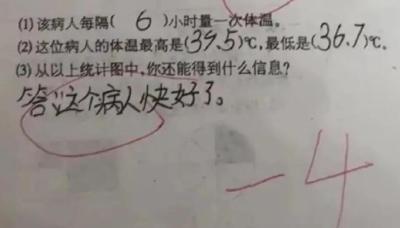 (1) 该病人每隔( 6 )小时量一次体温。
(2) 这位病人的体温最高是(39.5)℃,最低是(36.7)℃.
(3) 从以上统计图中,你还能得到什么信息?
答:这个病人快好了。
-4